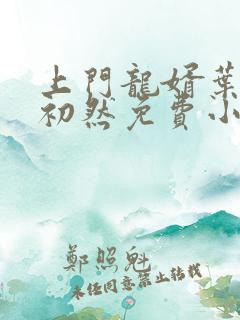 上門龍婿葉
初然免費小
鄭照魁
未经同意禁止转载